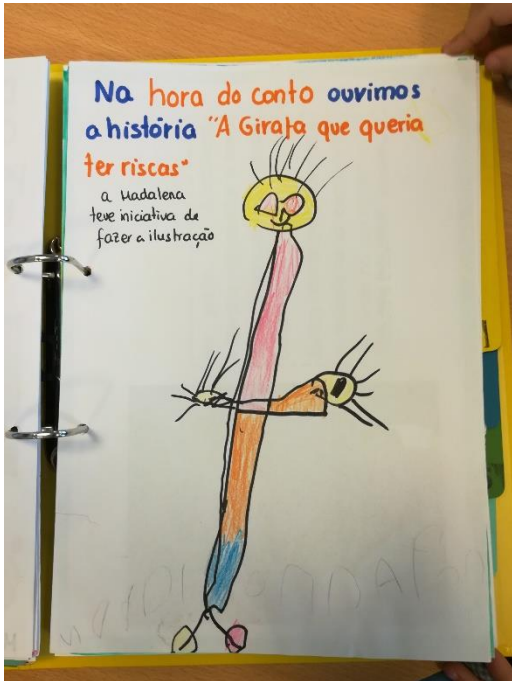 Na hora do conto ouvimos
a história "A Girafa que queria
ter riscas"
a Madalena
teve iniciativa de
fazer a ilustração